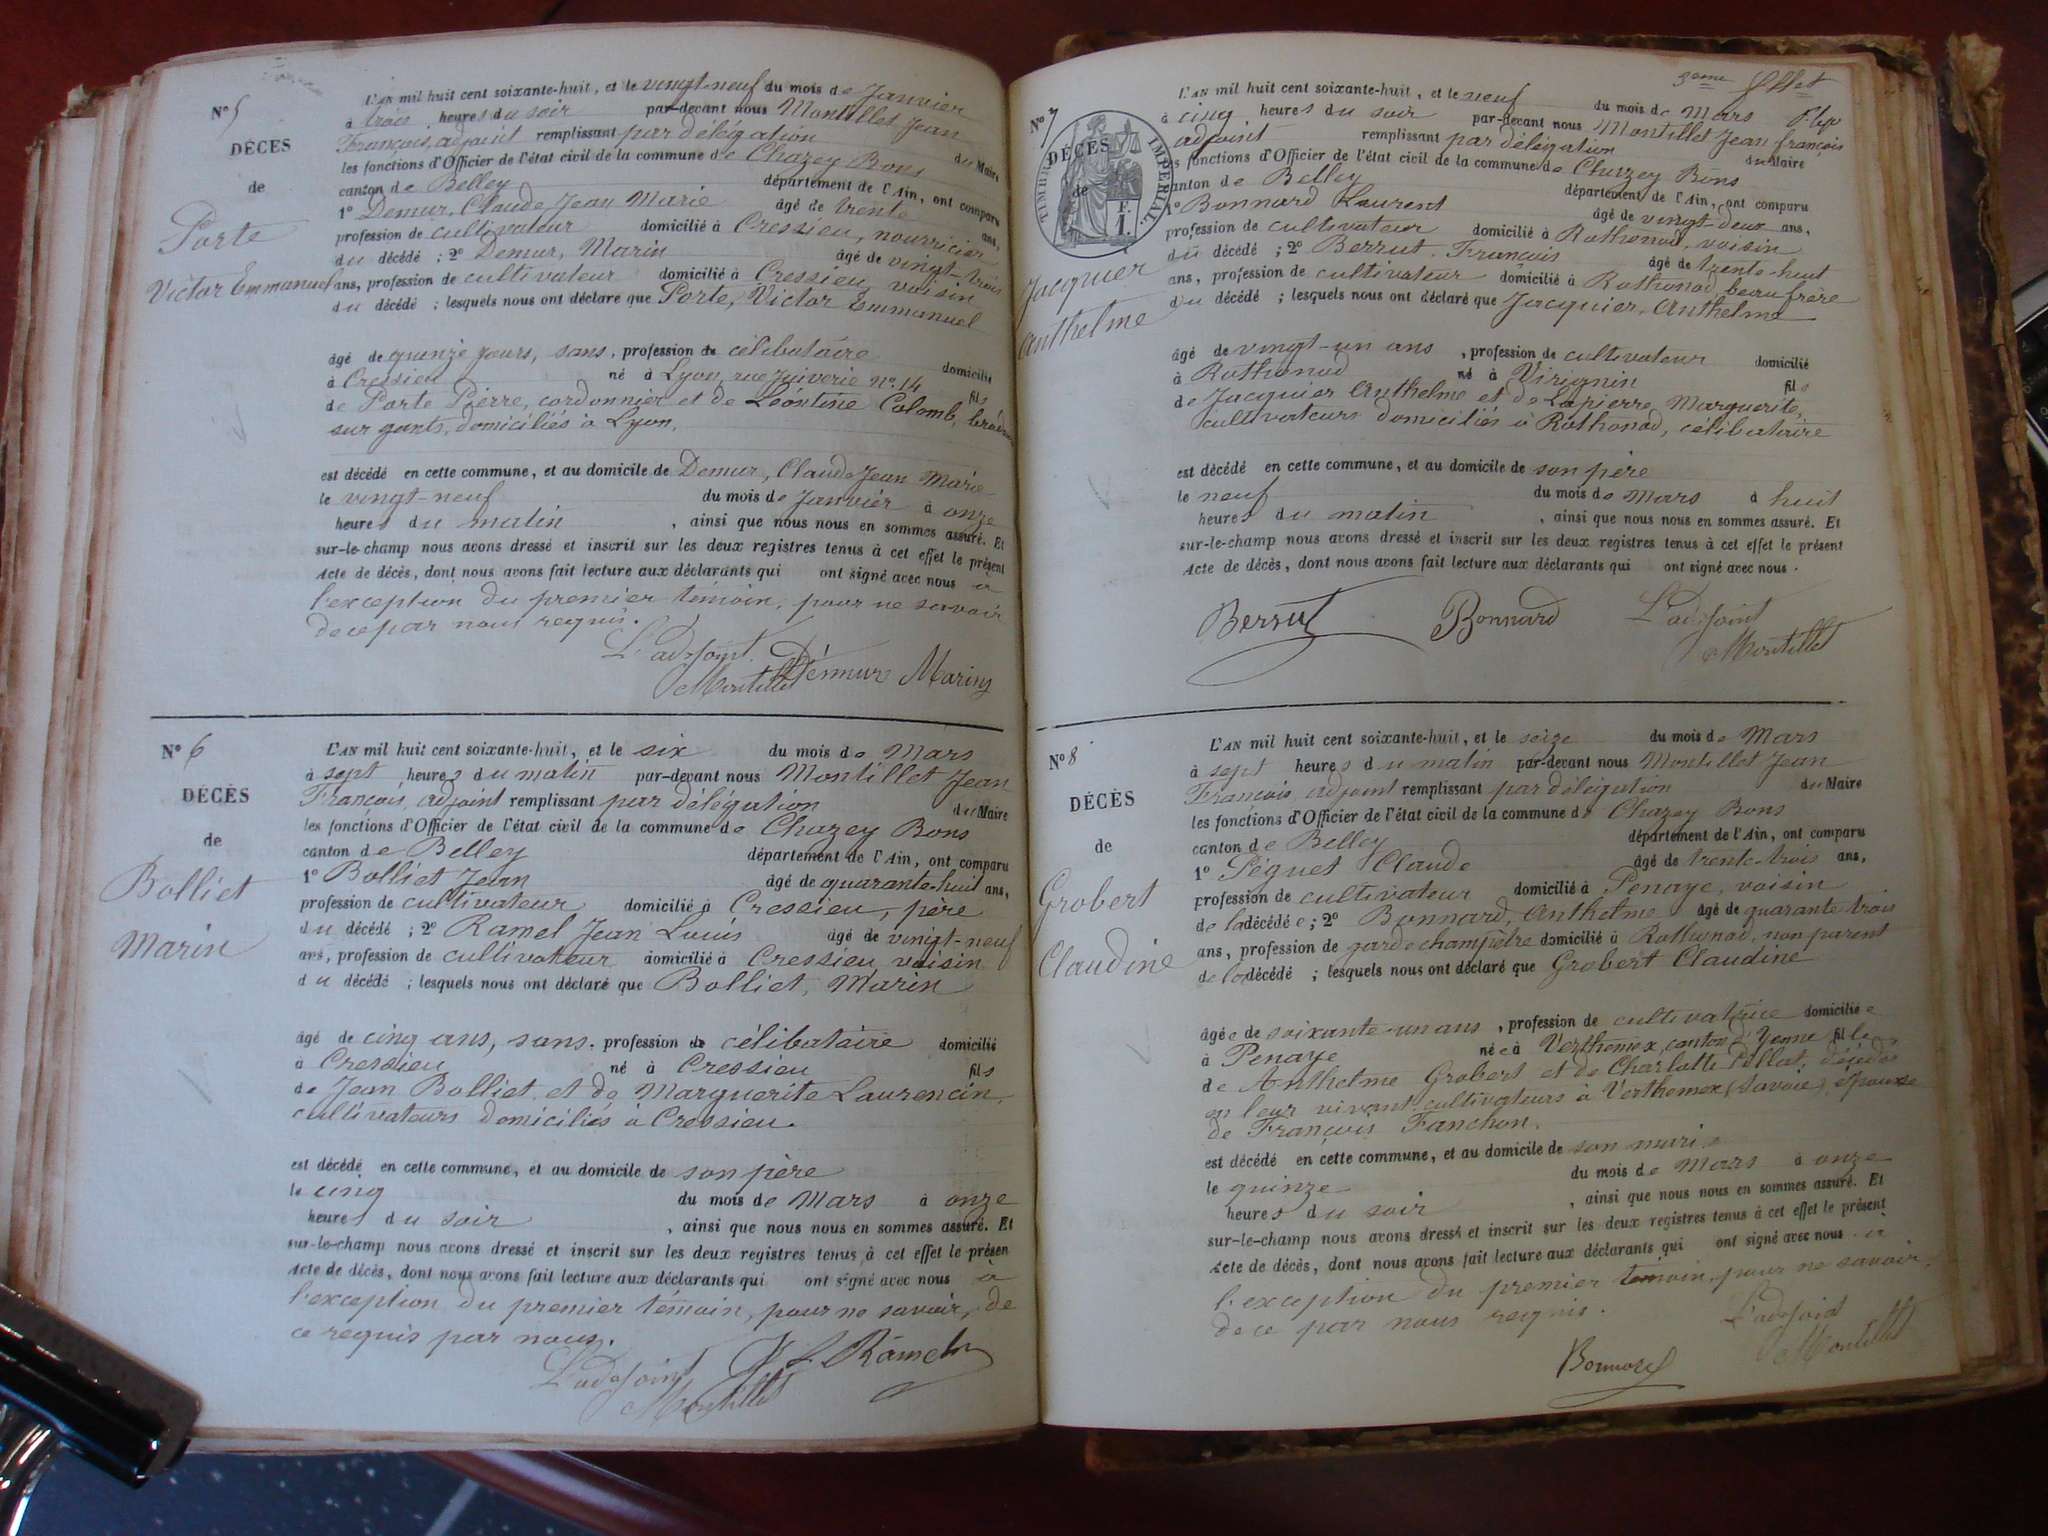 N° 5
DÉCÈS
de
Porte
Victor Emmanuel
L'AN mil huit cent soixante-huit, et le vingt-neuf du mois de Janvier
à trois heures du soir par-devant nous Montillet Jean
François, adjoint remplissant par délégation du Maire
les fonctions d'Officier de l'état civil de la commune de Chazey Bons
canton de Belley département de l'Ain, ont comparu
1° Demur, Claude Jean Marie âgé de trente ans,
profession de cultivateur domicilié à Cressieu, nourricier
du décédé ; 2° Demur, Marin âgé de vingt-trois
ans, profession de cultivateur domicilié à Cressieu, voisin
du décédé ; lesquels nous ont déclaré que Porte, Victor Emmanuel
âgé de quinze jours, sans, profession de célibataire domicilié
à Cressieu né à Lyon, rue Juiverie n°. 14 fils
de Porte Pierre, cordonnier et de Léontine Colomb,
sur gants, domiciliés à Lyon.
est décédé en cette commune, et au domicile de Demur, Claude Jean Marie
le vingt-neuf du mois de Janvier à onze
heures du matin , ainsi que nous nous en sommes assuré. Et
sur-le-champ nous avons dressé et inscrit sur les deux registres tenus à cet effet le présent
Acte de décès, dont nous avons fait lecture aux déclarants qui ont signé avec nous à
l'exception du premier témoin, pour ne savoir
de ce par nous requis.
L'adjoint Demur Marin
Montillet
N° 6
DÉCÈS
de
Bolliet
Marin
L'AN mil huit cent soixante-huit, et le six du mois de Mars
à sept heures du matin par-devant nous Montillet Jean
François, adjoint remplissant par délégation du Maire
les fonctions d'Officier de l'état civil de la commune de Chazey Bons
canton de Belley département de l'Ain, ont comparu
1° Bolliet Jean âgé de quarante-huit ans,
profession de cultivateur domicilié à Cressieu, père
du décédé ; 2° Ramel Jean Louis âgé de vingt-neuf
ans, profession de cultivateur domicilié à Cressieu voisin
du décédé ; lesquels nous ont déclaré que Bolliet, Marin
âgé de cinq ans, sans, profession de célibataire domicilié
à Cressieu né à Cressieu fils
de Jean Bolliet et de Marguerite Laurencin,
cultivateurs domiciliés à Cressieu.
est décédé en cette commune, et au domicile de son père
le cinq du mois de Mars à onze
heures du soir , ainsi que nous nous en sommes assuré. Et
sur-le-champ nous avons dressé et inscrit sur les deux registres tenus à cet effet le présen
Acte de décès, dont nous avons fait lecture aux déclarants qui ont signé avec nous à
l'exception du premier témoin, pour ne savoir, de
ce requis par nous.
L'adjoint J L Ramel
Montillet
3eme
N° 7
TIMBRE IMPÉRIAL
F.
1.
DÉCÈS
de
Jacquier
Anthelme
L'AN mil huit cent soixante-huit, et le neuf du mois de Mars
à cinq heures du soir par-devant nous Montillet Jean françois
adjoint remplissant par délégation du Maire
les fonctions d'Officier de l'état civil de la commune de Chazey Bons
canton de Belley département de l'Ain, ont comparu
1° Bonnard Laurent âgé de vingt-deux ans,
profession de cultivateur domicilié à Rothonod, voisin
du décédé ; 2° Berrut, François âgé de trente-huit
ans, profession de cultivateur domicilié à Rothonod, beau frère
du décédé ; lesquels nous ont déclaré que Jacquier, Anthelme
âgé de vingt-un ans , profession de cultivateur domicilié
à Rothonod né à Virignin fils
de Jacquier Anthelme et de Lapierre, Marguerite,
cultivateurs domiciliés à Rothonod, célibataire
est décédé en cette commune, et au domicile de son père
le neuf du mois de Mars à huit
heures du matin , ainsi que nous nous en sommes assuré. Et
sur-le-champ nous avons dressé et inscrit sur les deux registres tenus à cet effet le présent
Acte de décès, dont nous avons fait lecture aux déclarants qui ont signé avec nous.
Berrut Bonnard L'adjoint
Montillet
N° 8
DÉCÈS
de
Grobert
Claudine
L'AN mil huit cent soixante-huit, et le seize du mois de Mars
à sept heures du matin par-devant nous Montillet Jean
François, adjoint remplissant par délégation du Maire
les fonctions d'Officier de l'état civil de la commune de Chazey Bons
canton de Belley département de l'Ain, ont comparu
1° Péguet Claude âgé de trente-trois ans,
profession de cultivateur domicilié à Penaye, voisin
de la décédée ; 2° Bonnard, Anthelme âgé de quarante trois
ans, profession de garde champêtre domicilié à Rothonod, non parent
de la décédé ; lesquels nous ont déclaré que Grobert Claudine
âgée de soixante-un ans , profession de cultivatrice domiciliée
à Penaye née à Verthemex, canton d'Yenne fille
de Anthelme Grobert et de Charlotte Pollat, décédés
en leur vivant cultivateurs à Verthemex (Savoie), épouse
de François Fanchon.
est décédé en cette commune, et au domicile de son mari
le quinze du mois de Mars à onze
heures du soir , ainsi que nous nous en sommes assuré. Et
sur-le-champ nous avons dressé et inscrit sur les deux registres tenus à cet effet le présent
Acte de décès, dont nous avons fait lecture aux déclarants qui ont signé avec nous à
l'exception du premier témoin, pour ne savoir,
de ce par nous requis.
L'adjoint
Bonnard Montillet